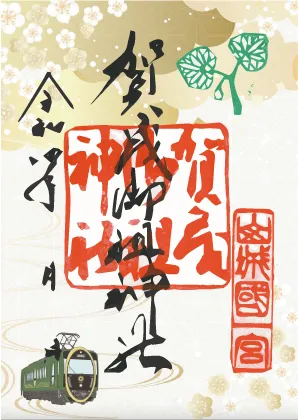 賀茂御祖神社
令和 年 月 日
賀茂
御祖
神社
山城國
一宮